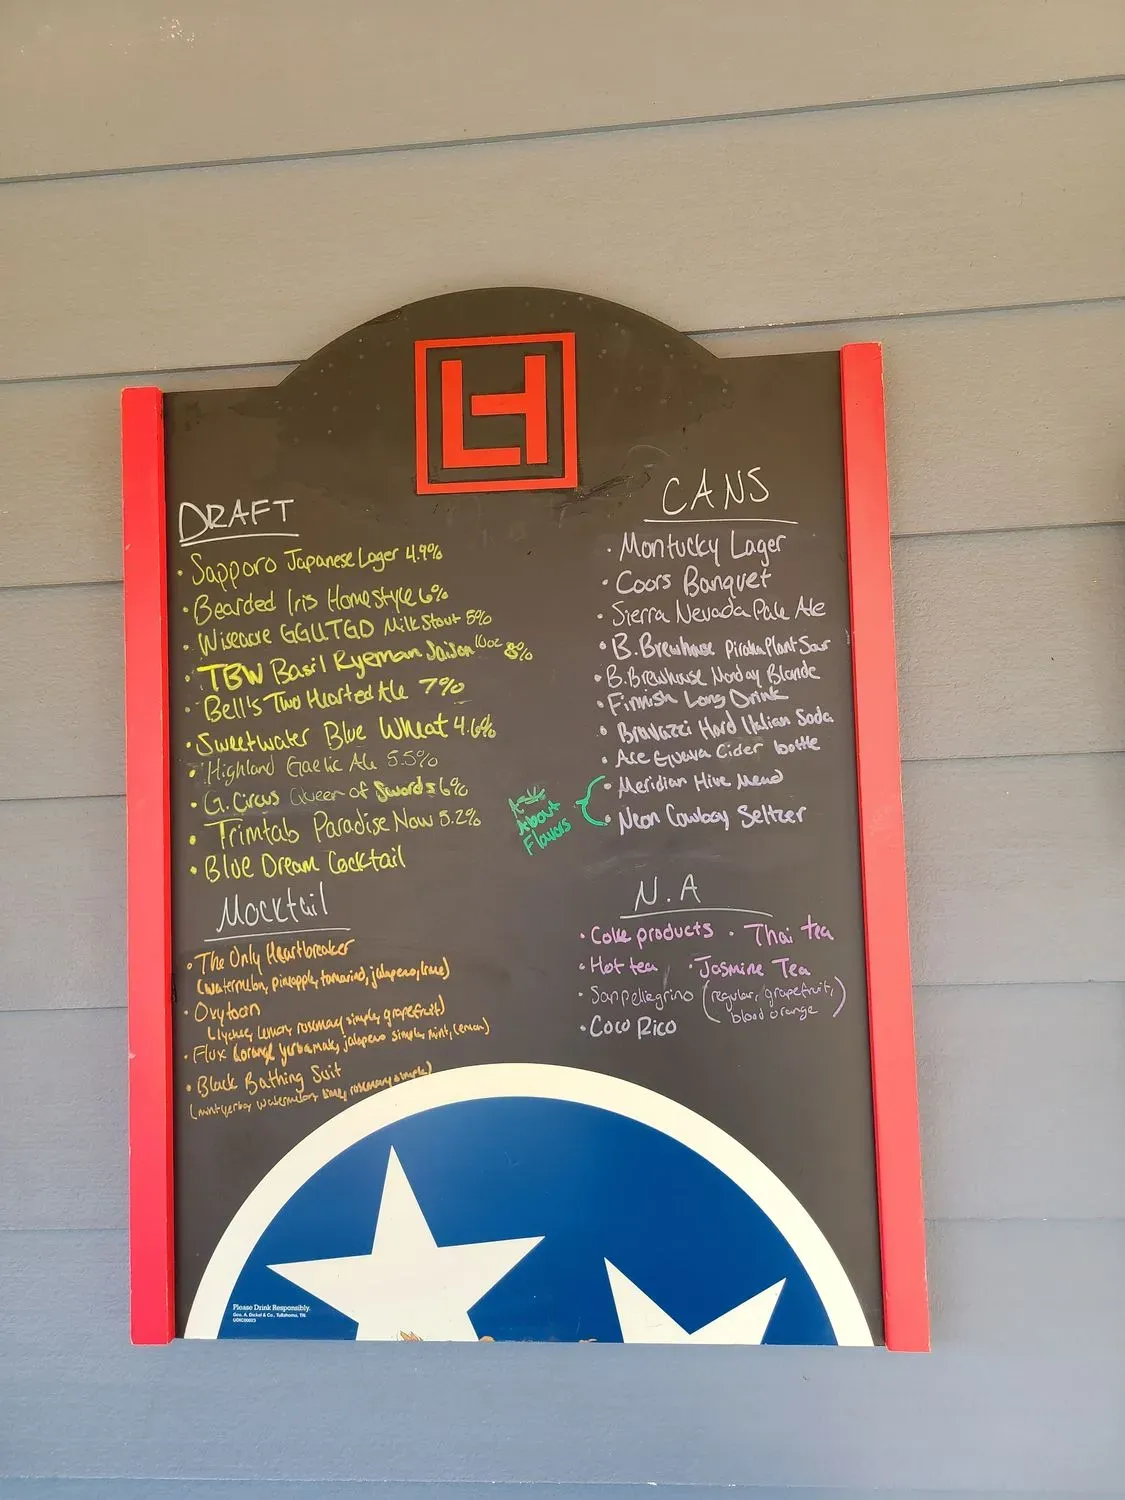 LH
DRAFT
· Sapporo Japanese Lager 4.9%
· Bearded Iris Homestyle 6%
· Wiseacre GGUTGD Milk Stout 5%
· TBW Basil Ryeman Saison 10oz 8%
· Bell's Two Hearted Ale 7%
· Sweetwater Blue Wheat 4.6%
· Highland Gaelic Ale 5.5%
· G. Circus Queen of Swords 6%
· Trimtab Paradise Now 5.2%
· Blue Dream Cocktail
Mocktail
· The Only Heartbreaker
(watermelon, pineapple, tamarind, jalapeno, lime)
· Oxytocin
(lychee, lemon, rosemary simple, grapefruit)
· Flux (orange yerbamate, jalapeno simple, mint, lemon)
· Black Bathing Suit
(mint yerba, watermelon, lime, rosemary simple)
CANS
· Montucky Lager
· Coors Banquet
· Sierra Nevada Pale Ale
· B. Brewhouse Piraha Plant Sour
· B. Brewhouse Blonde
· Finnish Long Drink
· Bravazzi Hard Italian Soda
· Ace Guava Cider bottle
· Meridian Hive Mead
· Neon Cowboy Seltzer
Ask
About
Flavors
N.A
· Coke products · Thai tea
· Hot tea · Jasmine Tea
· Sanpellegrino (regular, grapefruit,
blood orange)
· Coco Rico
Please Drink Responsibly.
Geo. A. Dickel & Co., Tullahoma, TN